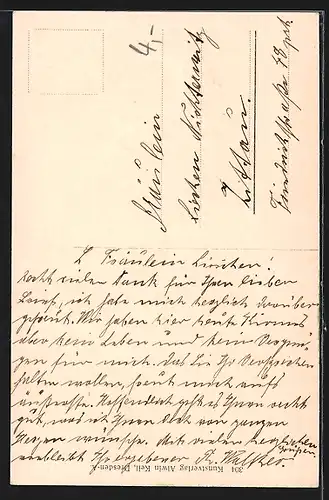 4,-
Fräulein
Lieschen
Zittau.
Friedrichstraße
L. Fräulein Lieschen!
Recht vielen Dank für Ihren lieben
Brief, ich habe mich herzlich darüber
gefreut. Wir haben hier heute Kirmes
aber kein Leben und kein Vergnü-
gen für mich. Daß Sie Ihr Versprechen
halten wollen, freut mich aufs
äußerste. Hoffentlich geht es Ihnen recht
gut, was ich Ihnen auch von ganzem
Herzen wünsche. Mit vielen herzlichen
Grüßen
verbleibt Ihr ergebener
304 Kunstverlag Alwin Keil, Dresden-A.